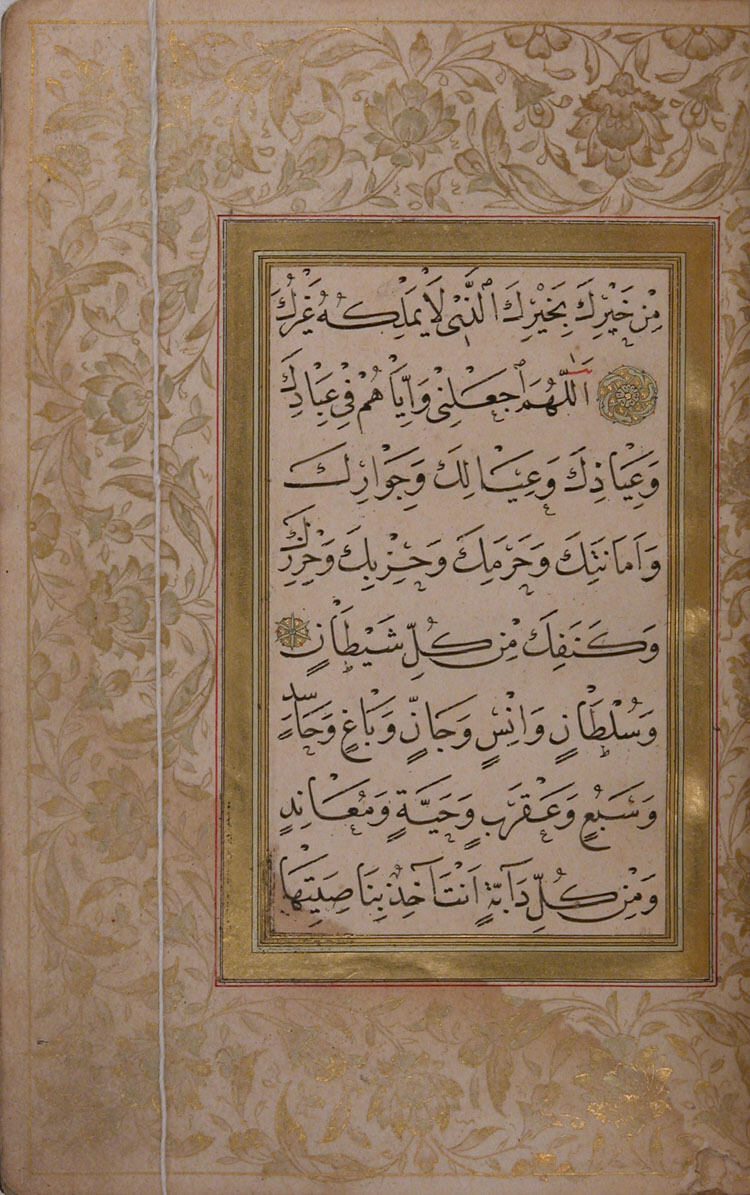 مِنْ خَيْرِكَ بِخَيْرِكَ الَّذٖى لَا يَمْلِكُهُ غَيْرُكَ
اَللّٰهُمَّ اجْعَلْنٖى وَاِيَّاهُمْ فٖى عِبَادِكَ
وَعِيَاذِكَ وَعِيَالِكَ وَجَوَارِكَ
وَاَمَانَتِكَ وَحَرَمِكَ وَحِزْبِكَ وَحِرْزِكَ
وَكَنَفِكَ مِنْ كُلِّ شَيْطَانٍ
وَسُلْطَانٍ وَاِنْسٍ وَجَانٍّ وَبَاغٍ وَحَاسِدٍ
وَسَبُعٍ وَعَقْرَبٍ وَحَيَّةٍ وَمُعَانِدٍ
وَمِنْ كُلِّ دَآبَّةٍ اَنْتَ اٰخِذٌ بِنَاصِيَتِهَا